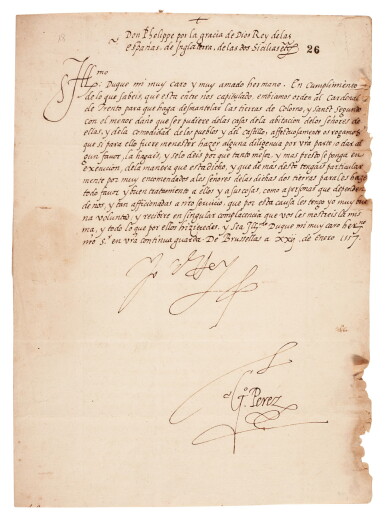 Don Phelippe por la gracia de Dios Rey de las
españas, de Inglaterra, de las dos Sicilias &c.
26
Ill.mo
Duque mi muy caro y muy amado hermano. En cumplimiento
de lo que sabeis que está entre nos capitulado, embiamos orden al Cardenal
de Trento para que haga desmantelar las tierras de Colorno, y Sanct Segundo
con el menor daño que ser pudiere de las casas de la abitacion de los señores de
ellas, y de la comodidad de los pueblos y del castillo, affectuosamente os rogamos
que si para ello fuere menester hazer alguna diligencia por vra parte o dar al
gun favor, la hagais, y este deis por que tanto mejor, y mas presto se ponga en
execucion, de la manera que esta dicho, y que de mas desto tengais particular
mente por muy encomendados a los señores de las dichas dos tierras para les hazer
todo favor, y buen tratamiento a ellos y a sus cosas, como a personas que dependen
de nos, y tan afficionadas a nro servicio, que por esta causa les tengo yo muy bue
na voluntad, y recibire en singular complacencia que vos les mostreis la mis
ma, y todo lo que por ellos hizieredes, y sea Ill.mo Duque mi muy caro her.no
nro S.r en vra continua guarda. De Brussellas a xxj de Enero 1557.
Yo el Rey
G.o Perez